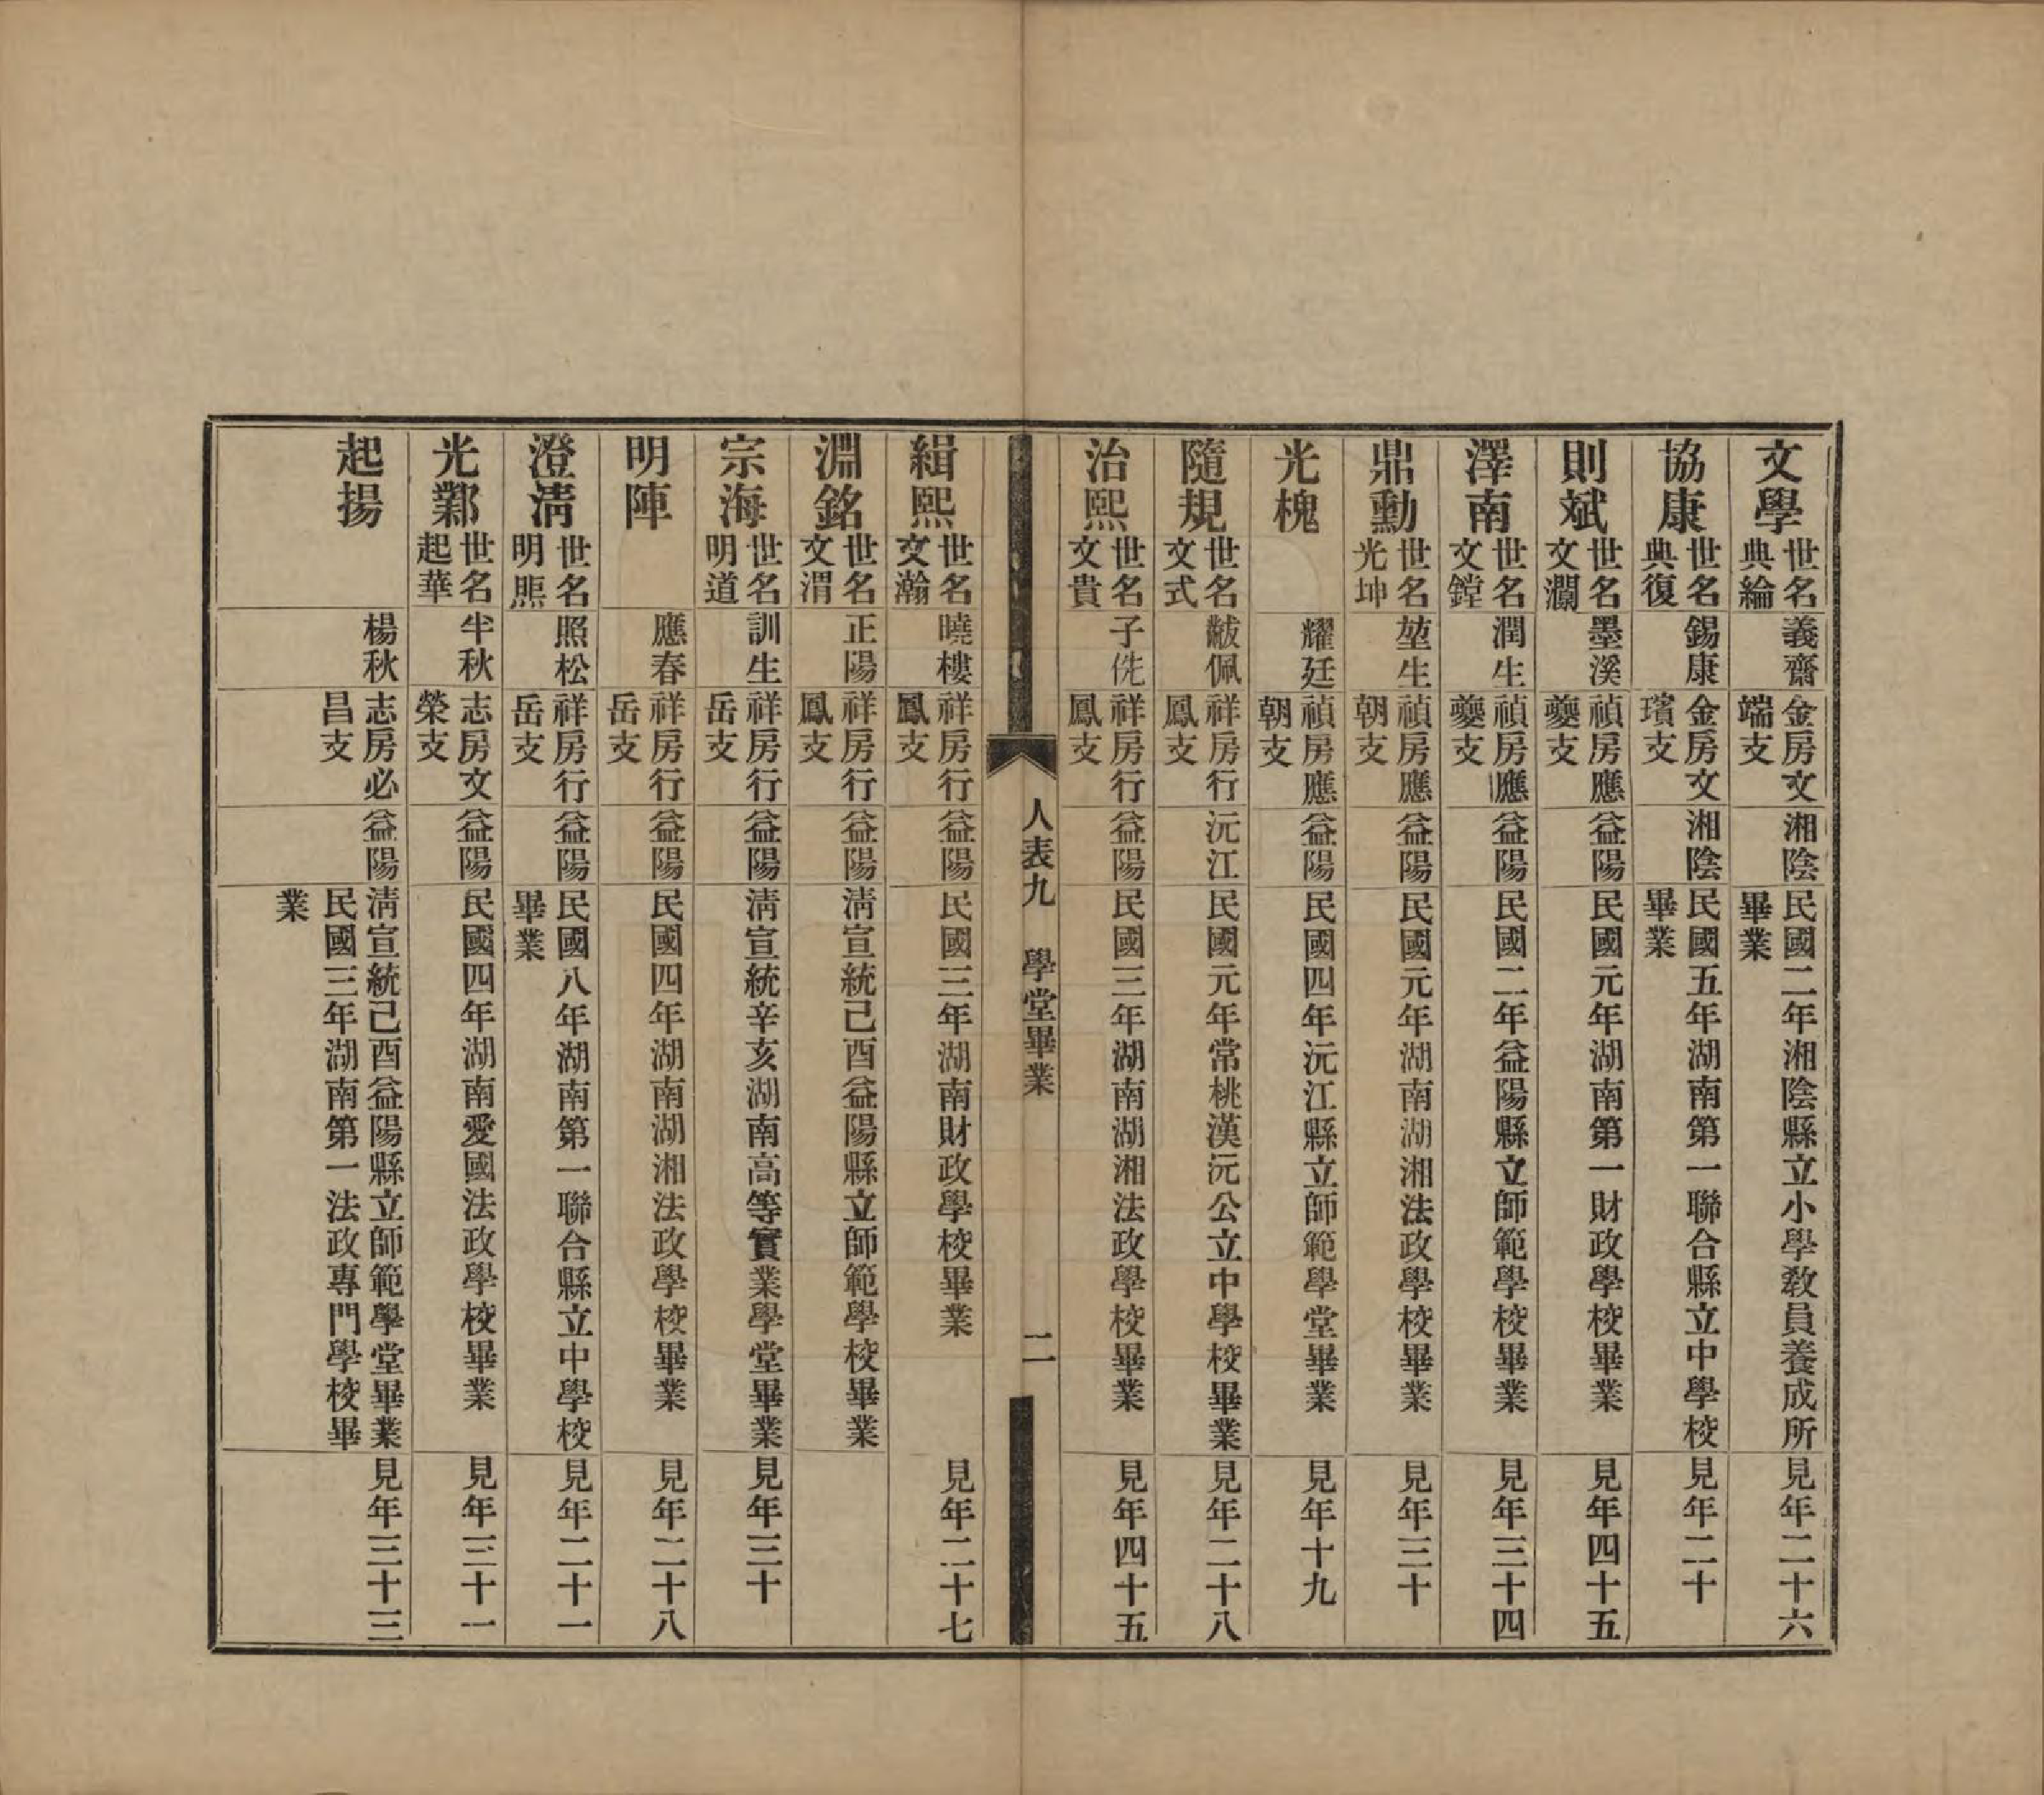 文學世名典綸 義齋 金房文端支 湘陰 民國二年湘陰縣立小學敎員養成所畢業 見年二十六
協康世名典復 錫康 金房文璸支 湘陰 民國五年湖南第一聯合縣立中學校畢業 見年二十
則斌世名文瀾 墨溪 禎房應夔支 益陽 民國元年湖南第一財政學校畢業 見年四十五
澤南世名文鏜 潤生 禎房應夔支 益陽 民國二年益陽縣立師範學校畢業 見年三十四
鼎勳世名光坤 堃生 禎房應朝支 益陽 民國元年湖南湖湘法政學校畢業 見年三十
光槐 耀廷 禎房應朝支 益陽 民國四年沅江縣立師範學堂畢業 見年十九
隨規世名文式 黻佩 祥房行鳳支 沅江 民國元年常桃漢沅公立中學校畢業 見年二十八
治熙世名文貴 子侁 祥房行鳳支 益陽 民國三年湖南湖湘法政學校畢業 見年四十五
人表九 學堂畢業 二
緝熙世名文瀚 曉樓 祥房行鳳支 益陽 民國三年湖南財政學校畢業 見年二十七
淵銘世名文渭 正陽 祥房行鳳支 益陽 淸宣統己酉益陽縣立師範學校畢業
宗海世名明道 訓生 祥房行岳支 益陽 淸宣統辛亥湖南高等實業學堂畢業 見年三十
明陣 應春 祥房行岳支 益陽 民國四年湖南湖湘法政學校畢業 見年二十八
澄淸世名明熙 照松 祥房行岳支 益陽 民國八年湖南第一聯合縣立中學校畢業 見年二十一
光鄴世名起華 半秋 志房文榮支 益陽 民國四年湖南愛國法政學校畢業 見年三十一
起揚 楊秋 志房必昌支 益陽 淸宣統己酉益陽縣立師範學堂畢業民國三年湖南第一法政專門學校畢業 見年三十三